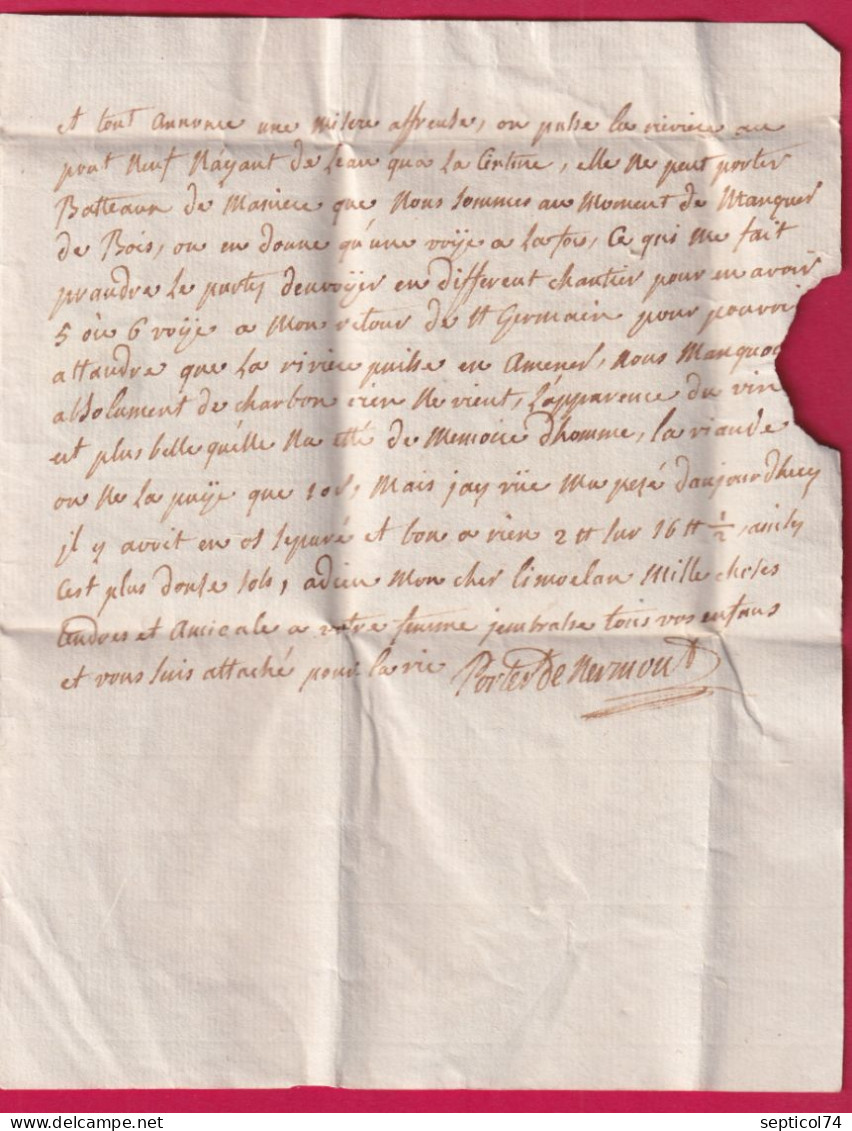 et tout annonce une misere affreuse, on passe la riviere au
pont neuf Nayant de Leau qua la Cinture, elle ne peut porter
Batteaux de Maniere que Nous sommes au Moment de Manquer
de Bois, on en donne qu'une voÿe a la fois, Ce qui me fait
prandre Le party denvoÿer en different chantier pour en avoir
5 où 6 voÿe a Mon retour de St Germain pour pouvoir
attandre que La riviere puisse en Amener, Nous Manquo
absolument de charbon rien Ne vient, L'apparence du vin
est plus belle quélle Na etté de Memoire d'homme, la viande
on Ne la paÿe que 10s, Mais jay vüe Ma pesé daujourdhuy
jl y avoit en os separé et bon a rien 2 ℔ sur 16 ℔ 1/2, ainsy
Cest plus douse sols, adieu Mon cher Limoelan Mille choses
tendres et Amicale a votre femme jembrasse tous vos enfans
et vous suis attaché pour la vie Porter De Nermont
septicol74